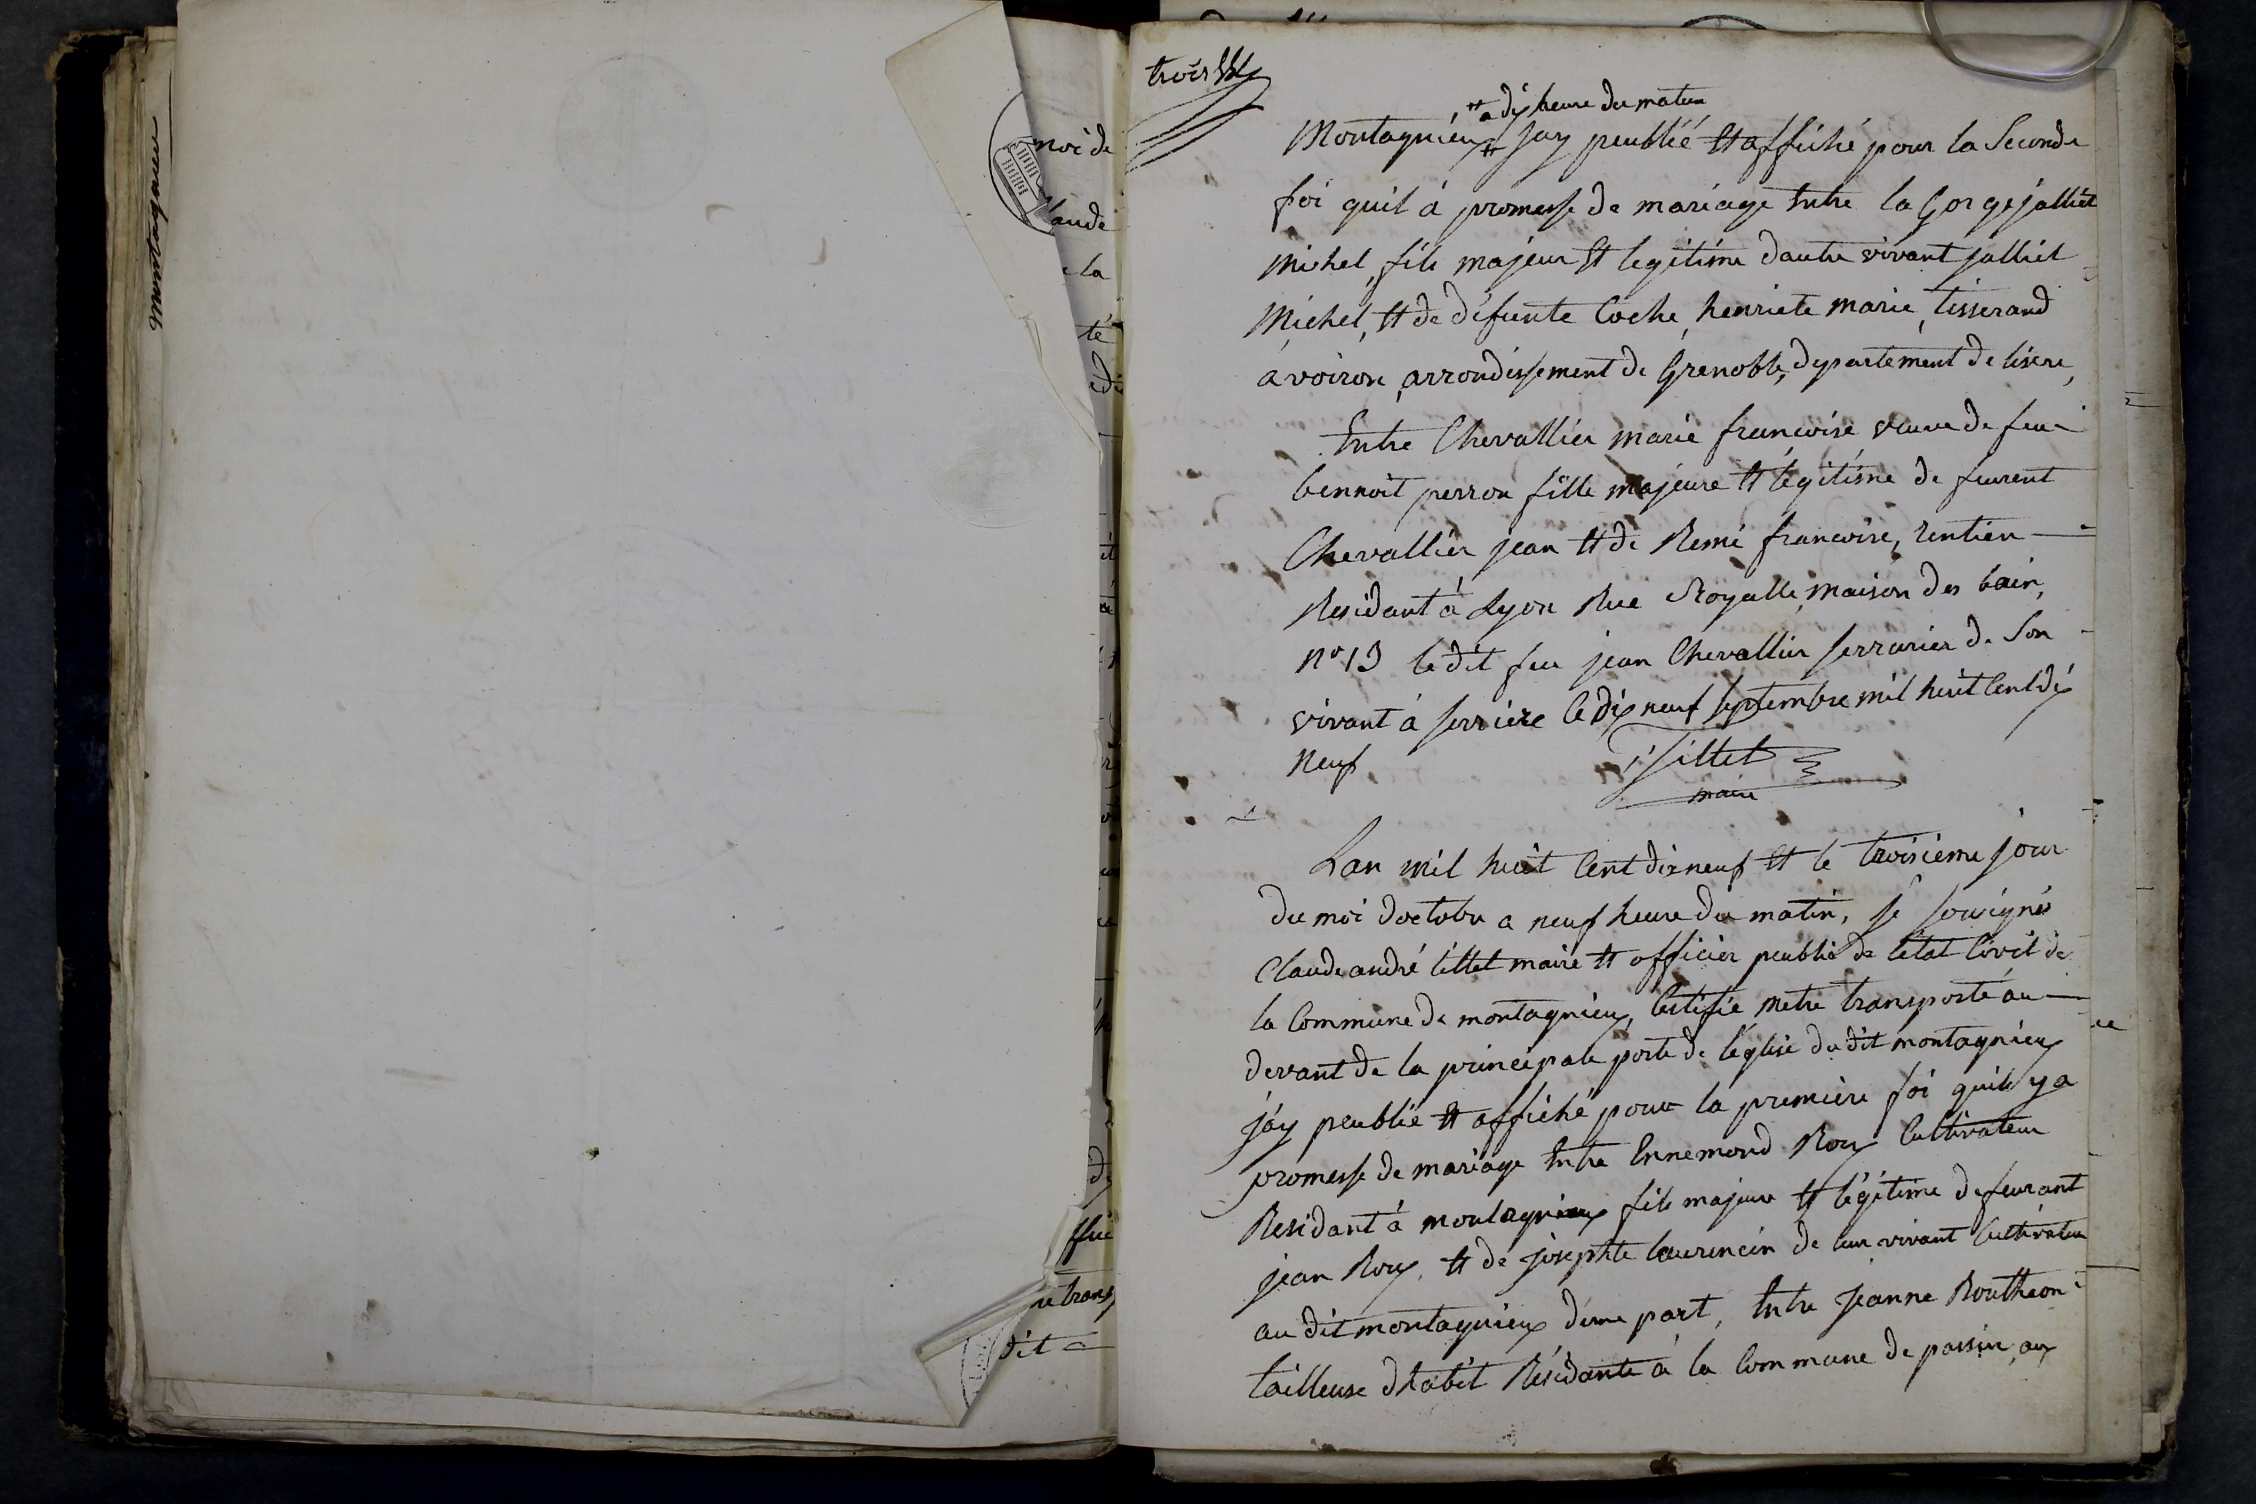 Montagnieu
moi de
laude
la
té
ffié
metransp
dit
trois
# a dix heure du matin
Montagnieux # jay peublié et affiché pour la Seconde
foi quil á promesse de mariage Entre la Gorge jalliét
Michel, fils majeur et legitime dautre vivant jalliet
Michel, et de défunte Coche, henriete marie, tisserand
á voiron, arrondissement de Grenoble, departement de lisere,
Entre Chevallier marie francoise veuve de feu
bennoit perron fille majeure et légitime de feurent
Chevallier jean et de Remi francoise, rentien
Residant á Lyon Rue Royalle, maison des bain,
n° 13 le dit feu jean Chevallier serrurier de Son
vivant á serriere le dix neuf septembre mil huit Cent dix
neuf
Tillet
maire
Lan mil huit Cent dixneuf et le troisieme jour
du moi doctobre a neuf heure du matin, je sousigné
Claude andré tillet maire et officier peublic de létat Civil de
la Commune de montagnieux, Certifie metre transporté au
devant de la principale porte de léglise du dit montagnieux
j'ay peublié et affiché pour la premiere foi quil y a
promesse de mariage Entre Ennemond Roux Cultivateur
Residant á montagnieux fils majeur et légitime de feurant
jean Roux, et de josephte laurencin de leur vivant Cultivateur
au dit montagnieux dune part, Entre jeanne Boutheon
tailleuse dhabit Résidante á la Commune de passin, aux